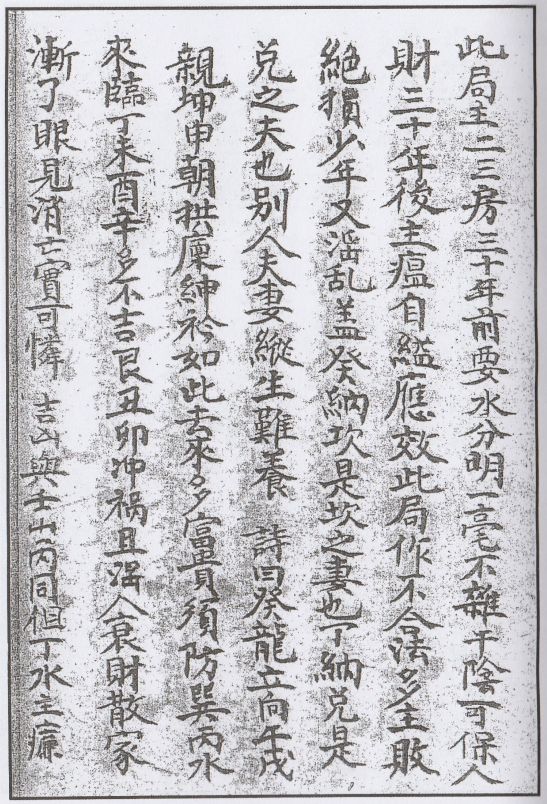 此局主二三房三十年前要水分明一毫不雜干陰可保人
財三十年後主瘟自縊應效此局作不合法多主敗
絕損少年又淫乱盖癸納坎是坎之妻也丁納兑是
兑之夫也別人夫妻縱生難養 詩曰癸龍立向午戌
親坤申朝拱廩紳衿如此去來多富貴須防巽丙水
來臨丁未酉辛多不吉艮丑卯冲祸且淫人衰財散家
漸了眼見消亡實可憐 吉凶與壬山丙同但丁水主瘟